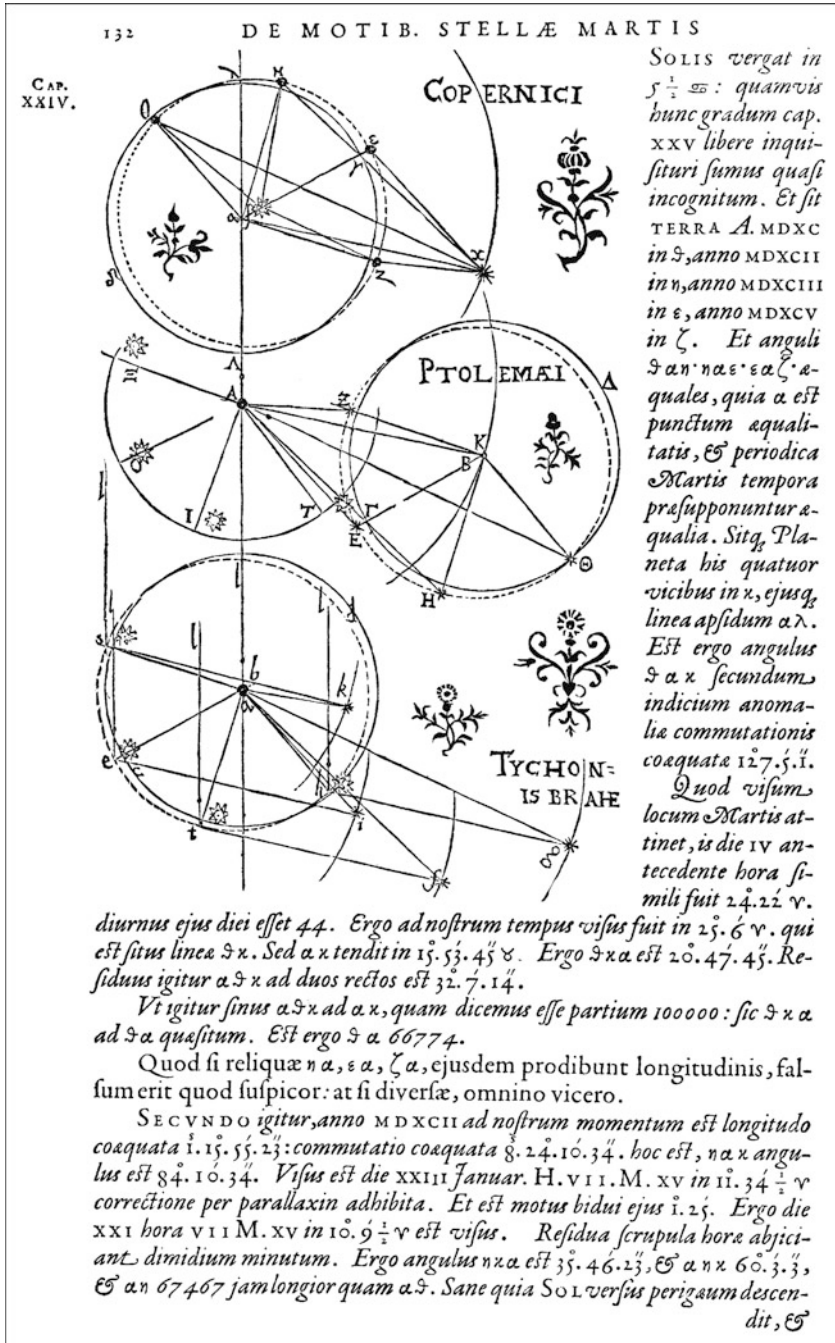 132 DE MOTIB. STELLÆ MARTIS
CAP.
XXIV.
COPERNICI
PTOLEMÆI
TYCHON=
IS BRAHE
SOLIS vergat in
5 1/2 ♎: quamvis
hunc gradum cap.
XXV libere inqui-
ſituri ſumus quaſi
incognitum. Et ſit
TERRA A. MDXC
in ϑ, anno MDXCII
in η, anno MDXCIII
in ε, anno MDXCV
in ζ. Et anguli
ϑαη·ηαε·εαζ·æ-
quales, quia α eſt
punctum æquali-
tatis, & periodica
Martis tempora
præſupponuntur æ-
qualia. Sitq; Pla-
neta his quatuor
vicibus in κ, ejusq;
linea apſidum αλ.
Eſt ergo angulus
ϑακ ſecundum
indicium anoma-
liæ commutationis
coæquatæ 127.5.1.
Quod viſum
locum Martis at-
tinet, is die IV an-
tecedente hora ſi-
mili fuit 24.22 ♈.
diurnus ejus diei eſſet 44. Ergo ad noſtrum tempus viſus fuit in 25.6 ♈. qui
eſt ſitus lineæ ϑκ. Sed ακ tendit in 15.53.45 ♉. Ergo ϑκα eſt 20.47.45. Re-
ſiduus igitur αϑκ ad duos rectos eſt 32.7.14.
Vt igitur ſinus αϑκ ad ακ, quam dicemus eſſe partium 100000: ſic ϑκα
ad ϑα quæſitum. Eſt ergo ϑα 66774.
Quod ſi reliquæ ηα, εα, ζα, ejusdem prodibunt longitudinis, fal-
ſum erit quod ſuſpicor: at ſi diverſæ, omnino vicero.
SECVNDO igitur, anno MDXCII ad noſtrum momentum eſt longitudo
coæquata 1.15.55.23: commutatio coæquata 8.24.10.34. hoc eſt, ηακ angu-
lus eſt 84.10.34. Viſus eſt die XXIII Januar. H. VII. M. XV in 11.34 1/2 ♈
correctione per parallaxin adhibita. Et eſt motus bidui ejus 1.25. Ergo die
XXI hora VII M. XV in 10.9 1/2 ♈ eſt viſus. Reſidua ſcrupula horæ abjici-
ant dimidium minutum. Ergo angulus ηκα eſt 35.46.23, & αηκ 60.3.3,
& αη 67467 jam longior quam αϑ. Sane quia SOL verſus perigæum deſcen-
dit, &